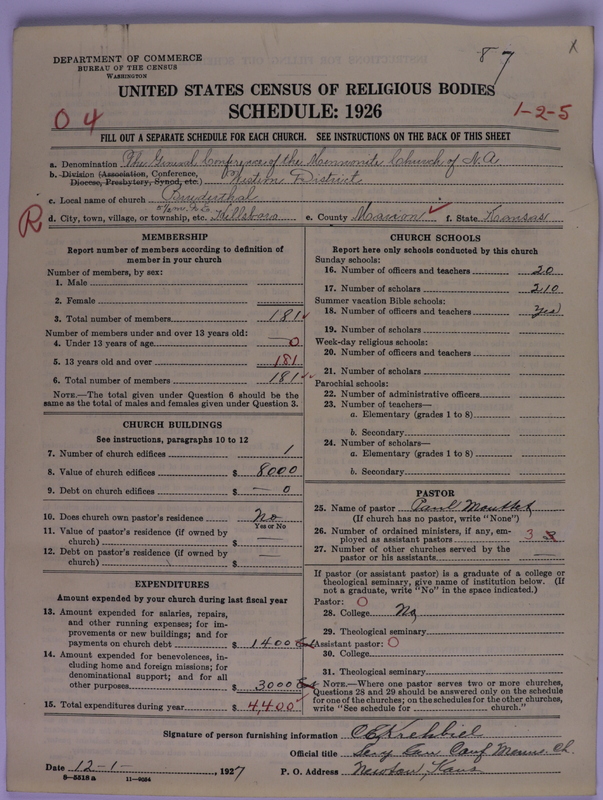 DEPARTMENT OF COMMERCE
BUREAU OF THE CENSUS
WASHINGTON
87
x
UNITED STATES CENSUS OF RELIGIOUS BODIES
SCHEDULE: 1926
04
1-2-5
FILL OUT A SEPARATE SCHEDULE FOR EACH CHURCH. SEE INSTRUCTIONS ON THE BACK OF THIS SHEET
a. Denomination The General Conference of the Mennonite Church of N.A.
b. Division (Association, Conference, Diocese, Presbytery, Synod, etc.) Western District
c. Local name of church Bruderthal
R
d. City, town, village, or township, etc. Hillsboro e. County Marion f. State Kansas
MEMBERSHIP
Report number of members according to definition of
member in your church
Number of members, by sex:
1. Male
2. Female
3. Total number of members 181
Number of members under and over 13 years old:
4. Under 13 years of age 0
5. 13 years old and over 181
6. Total number of members 181
NOTE.—The total given under Question 6 should be the
same as the total of males and females given under Question 3.
CHURCH BUILDINGS
See instructions, paragraphs 10 to 12
7. Number of church edifices 1
8. Value of church edifices $ 8000
9. Debt on church edifices $ — 0
10. Does church own pastor's residence No
Yes or No
11. Value of pastor's residence (if owned by
church) $ —
12. Debt on pastor's residence (if owned by
church) $ —
EXPENDITURES
Amount expended by your church during last fiscal year
13. Amount expended for salaries, repairs,
and other running expenses; for im-
provements or new buildings; and for
payments on church debt $ 1400
14. Amount expended for benevolences,
including home and foreign missions; for
denominational support; and for all
other purposes $ 3000
15. Total expenditures during year $ 4,400
CHURCH SCHOOLS
Report here only schools conducted by this church
Sunday schools:
16. Number of officers and teachers 20
17. Number of scholars 210
Summer vacation Bible schools:
18. Number of officers and teachers Yes
19. Number of scholars
Week-day religious schools:
20. Number of officers and teachers
21. Number of scholars
Parochial schools:
22. Number of administrative officers
23. Number of teachers—
a. Elementary (grades 1 to 8)
b. Secondary
24. Number of scholars—
a. Elementary (grades 1 to 8)
b. Secondary
PASTOR
25. Name of pastor Paul
(If church has no pastor, write "None")
26. Number of ordained ministers, if any, em-
ployed as assistant pastors 3
27. Number of other churches served by the
pastor or his assistants —
If pastor (or assistant pastor) is a graduate of a college or
theological seminary, give name of institution below. (If
not a graduate, write "No" in the space indicated.)
Pastor: O
28. College No
29. Theological seminary
Assistant pastor: O
30. College
31. Theological seminary
NOTE.—Where one pastor serves two or more churches,
Questions 28 and 29 should be answered only on the schedule
for one of the churches; on the schedules for the other churches,
write "See schedule for church."
Signature of person furnishing information C E Krehbiel
Official title Secy Gen Conf Menn. Ch.
Date 12-1- , 1927 P. O. Address Newton, Kans
8-5518 a 11-9054